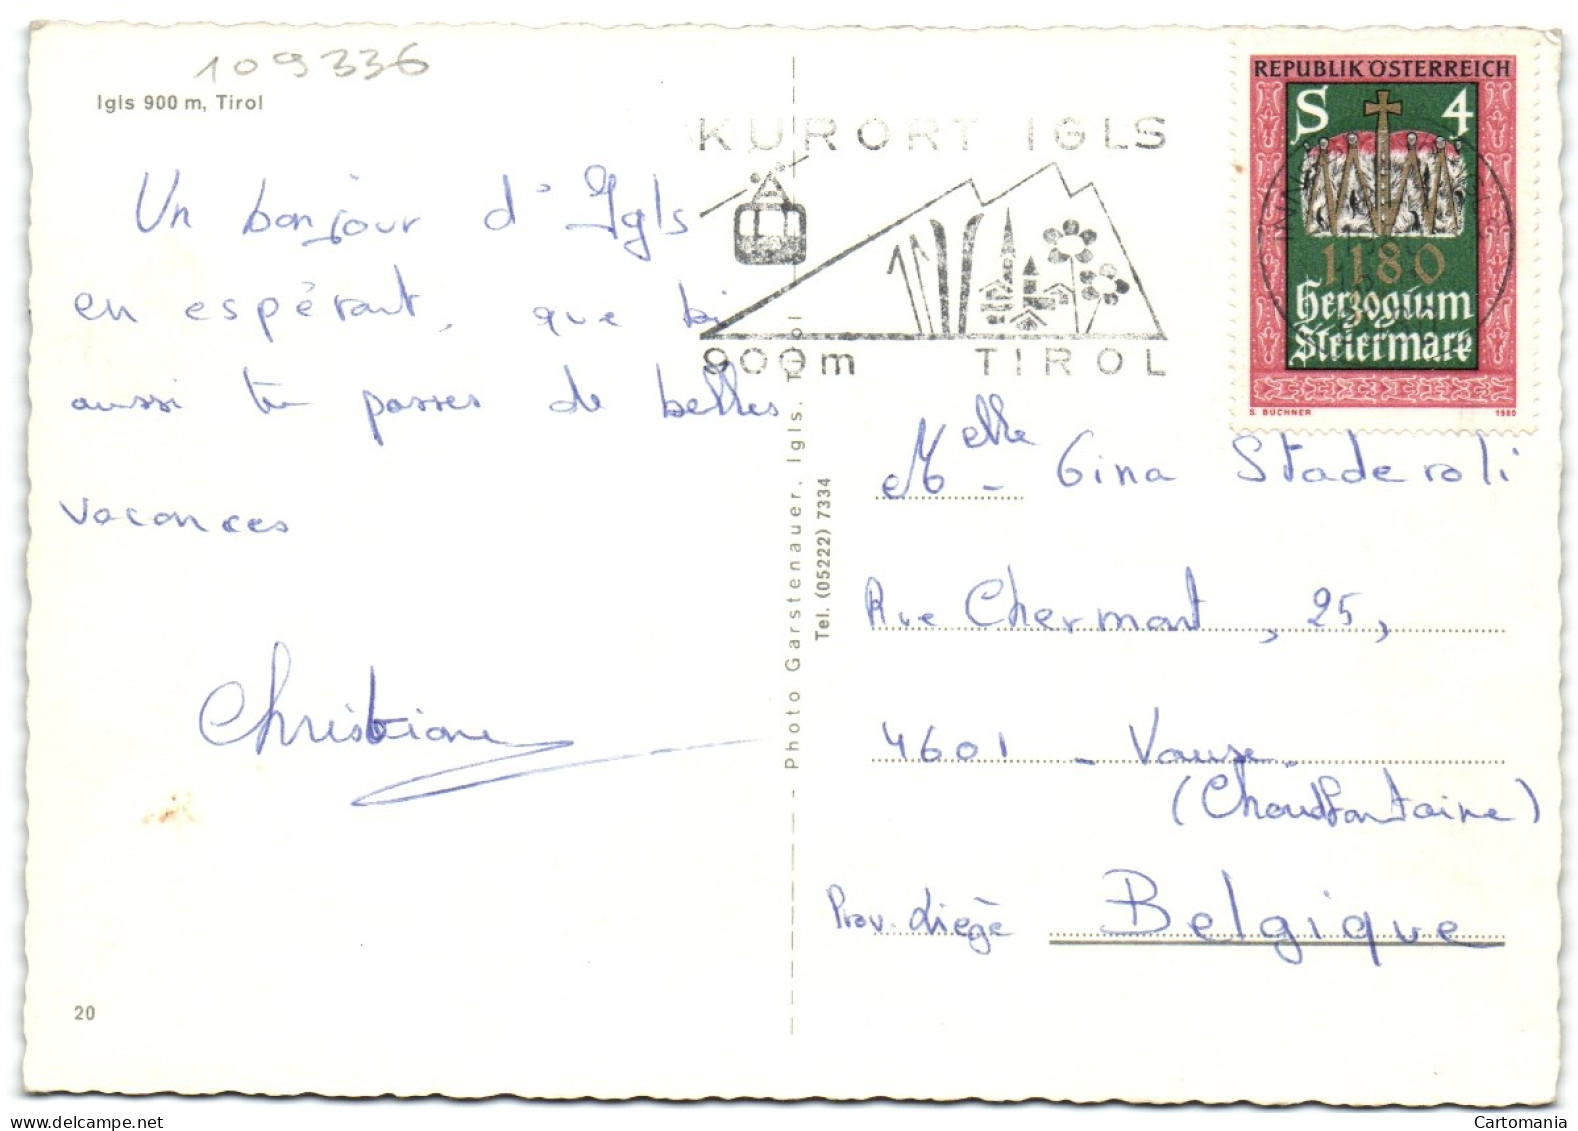 109336
Igls 900 m, Tirol
Un bonjour d'Igls
en espérant, que toi
aussi tu passes de belles
vacances
Christiane
20
KURORT IGLS
900m TIROL
REPUBLIK ÖSTERREICH
S 4
1180
Herzogtum
Steiermark
S. BUCHNER 1980
Photo Garstenauer, Igls. Tirol
Tel. (05222) 7334
Melle - Gina Staderoli
Rue Chermont, 25,
4601 - Vaux
(Chaudfontaine)
Prov. Liège Belgique
Cartomania